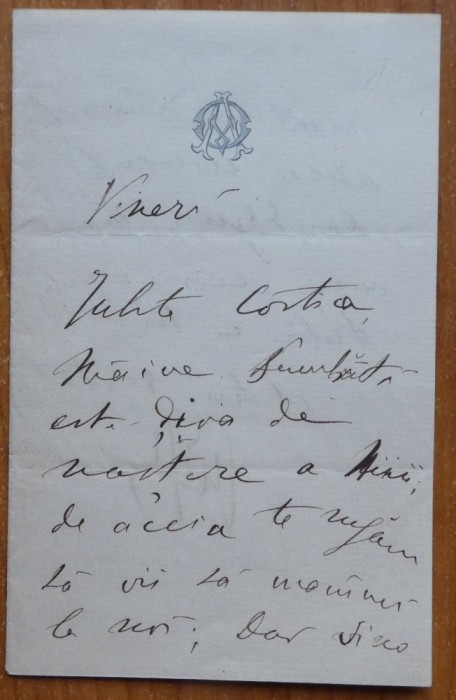 Vineri
Iubite Costica,
Mâine Sâmbătă
este ḑiua de
nastere a Ninii,
de aceia te rugăm
să vii să manînci
la noi; Dar vino